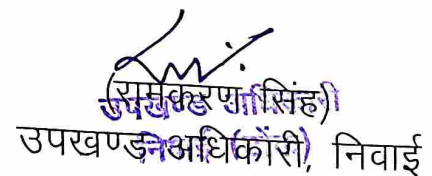 (रामकरण सिंह)
उपखण्ड अधिकारी, निवाई